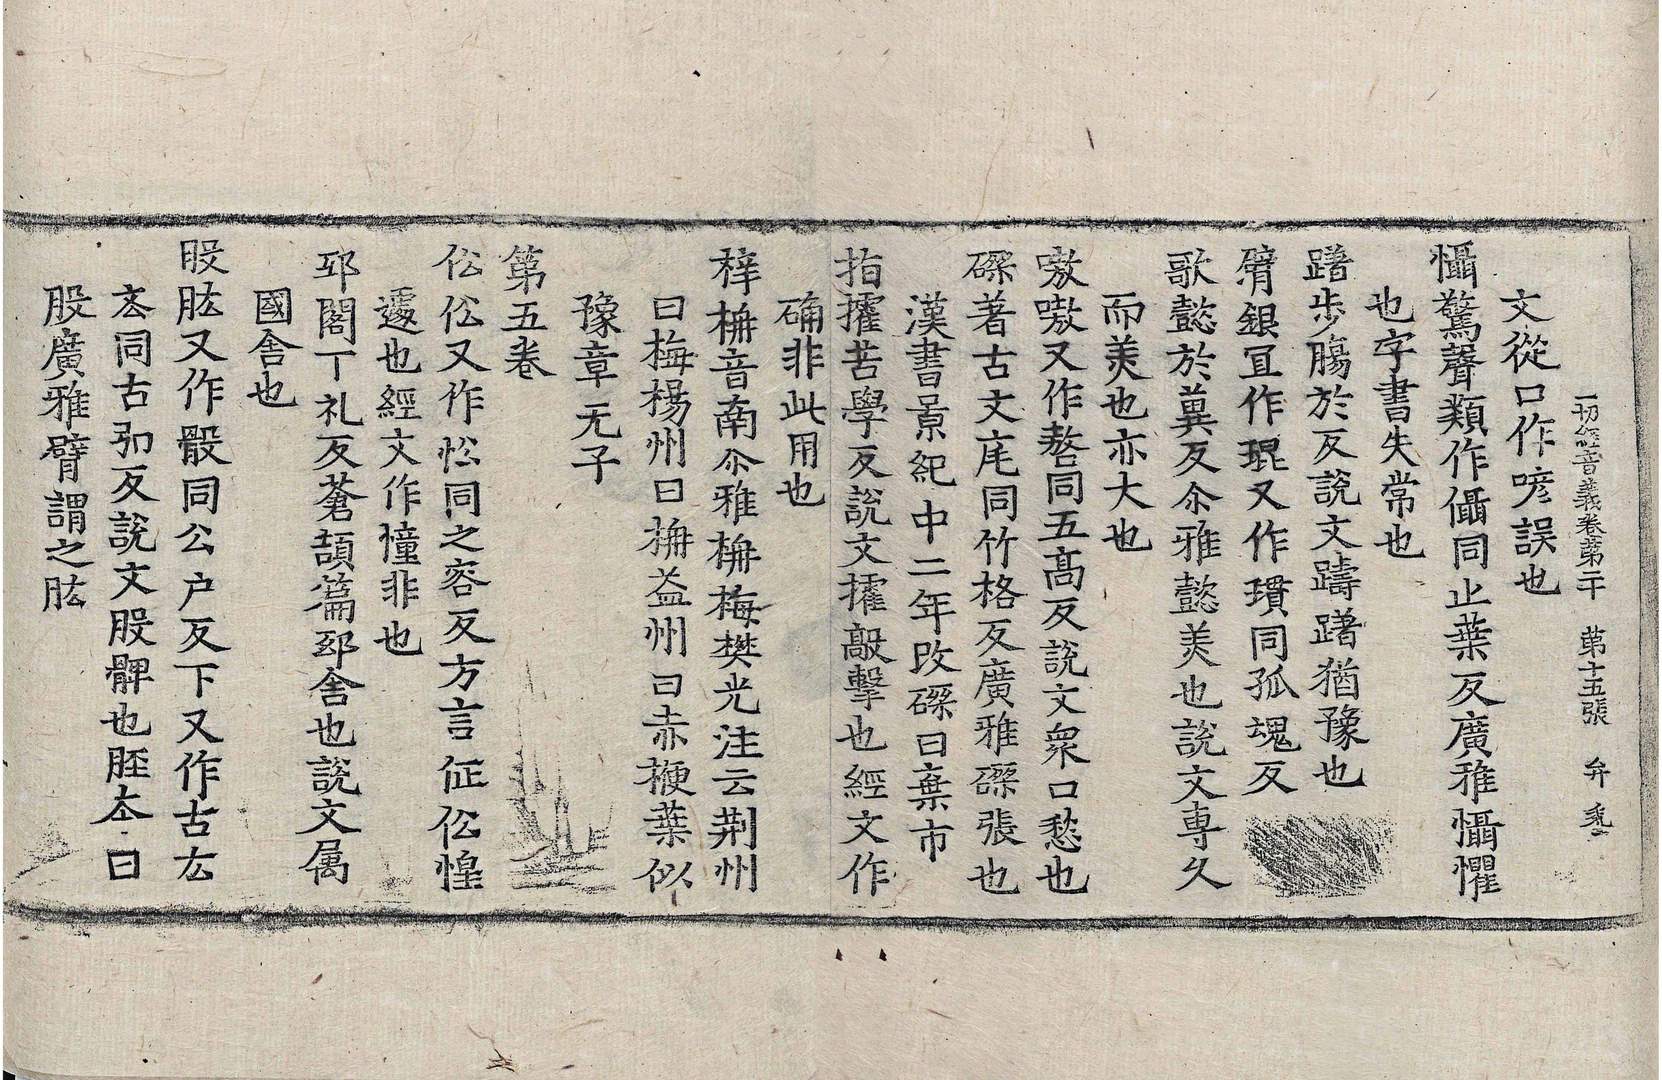 一切經音義卷第二十 第十五張 弁
文從口作喭誤也
懾驚聲類作儡同止葉反廣雅懾懼
也字書失常也
躇步腸於反說文躊躇猶豫也
臂銀宜作琨又作瑻同孤魂反
歌懿於兾反尒雅懿美也說文專久
而美也亦大也
嗷嗷又作謷同五髙反說文衆口愁也
磔著古文㡯同竹格反廣雅磔張也
漢書景紀中二年改磔曰棄市
指㩁苦學反說文㩁敲擊也經文作
确非此用也
梓柟音南尒雅柟梅樊光注云荆州
曰梅楊州曰柟益州曰赤楩葉似
豫章无子
第五卷
伀伀又作忪同之容反方言怔伀惶
遽也經文作憧非也
邳閣丁礼反蒼頡篇邸舍也說文属
國舍也
股肱又作骰同公户反下又作古厷
厷同古弘反說文股髀也胵夲曰
股廣雅臂謂之肱